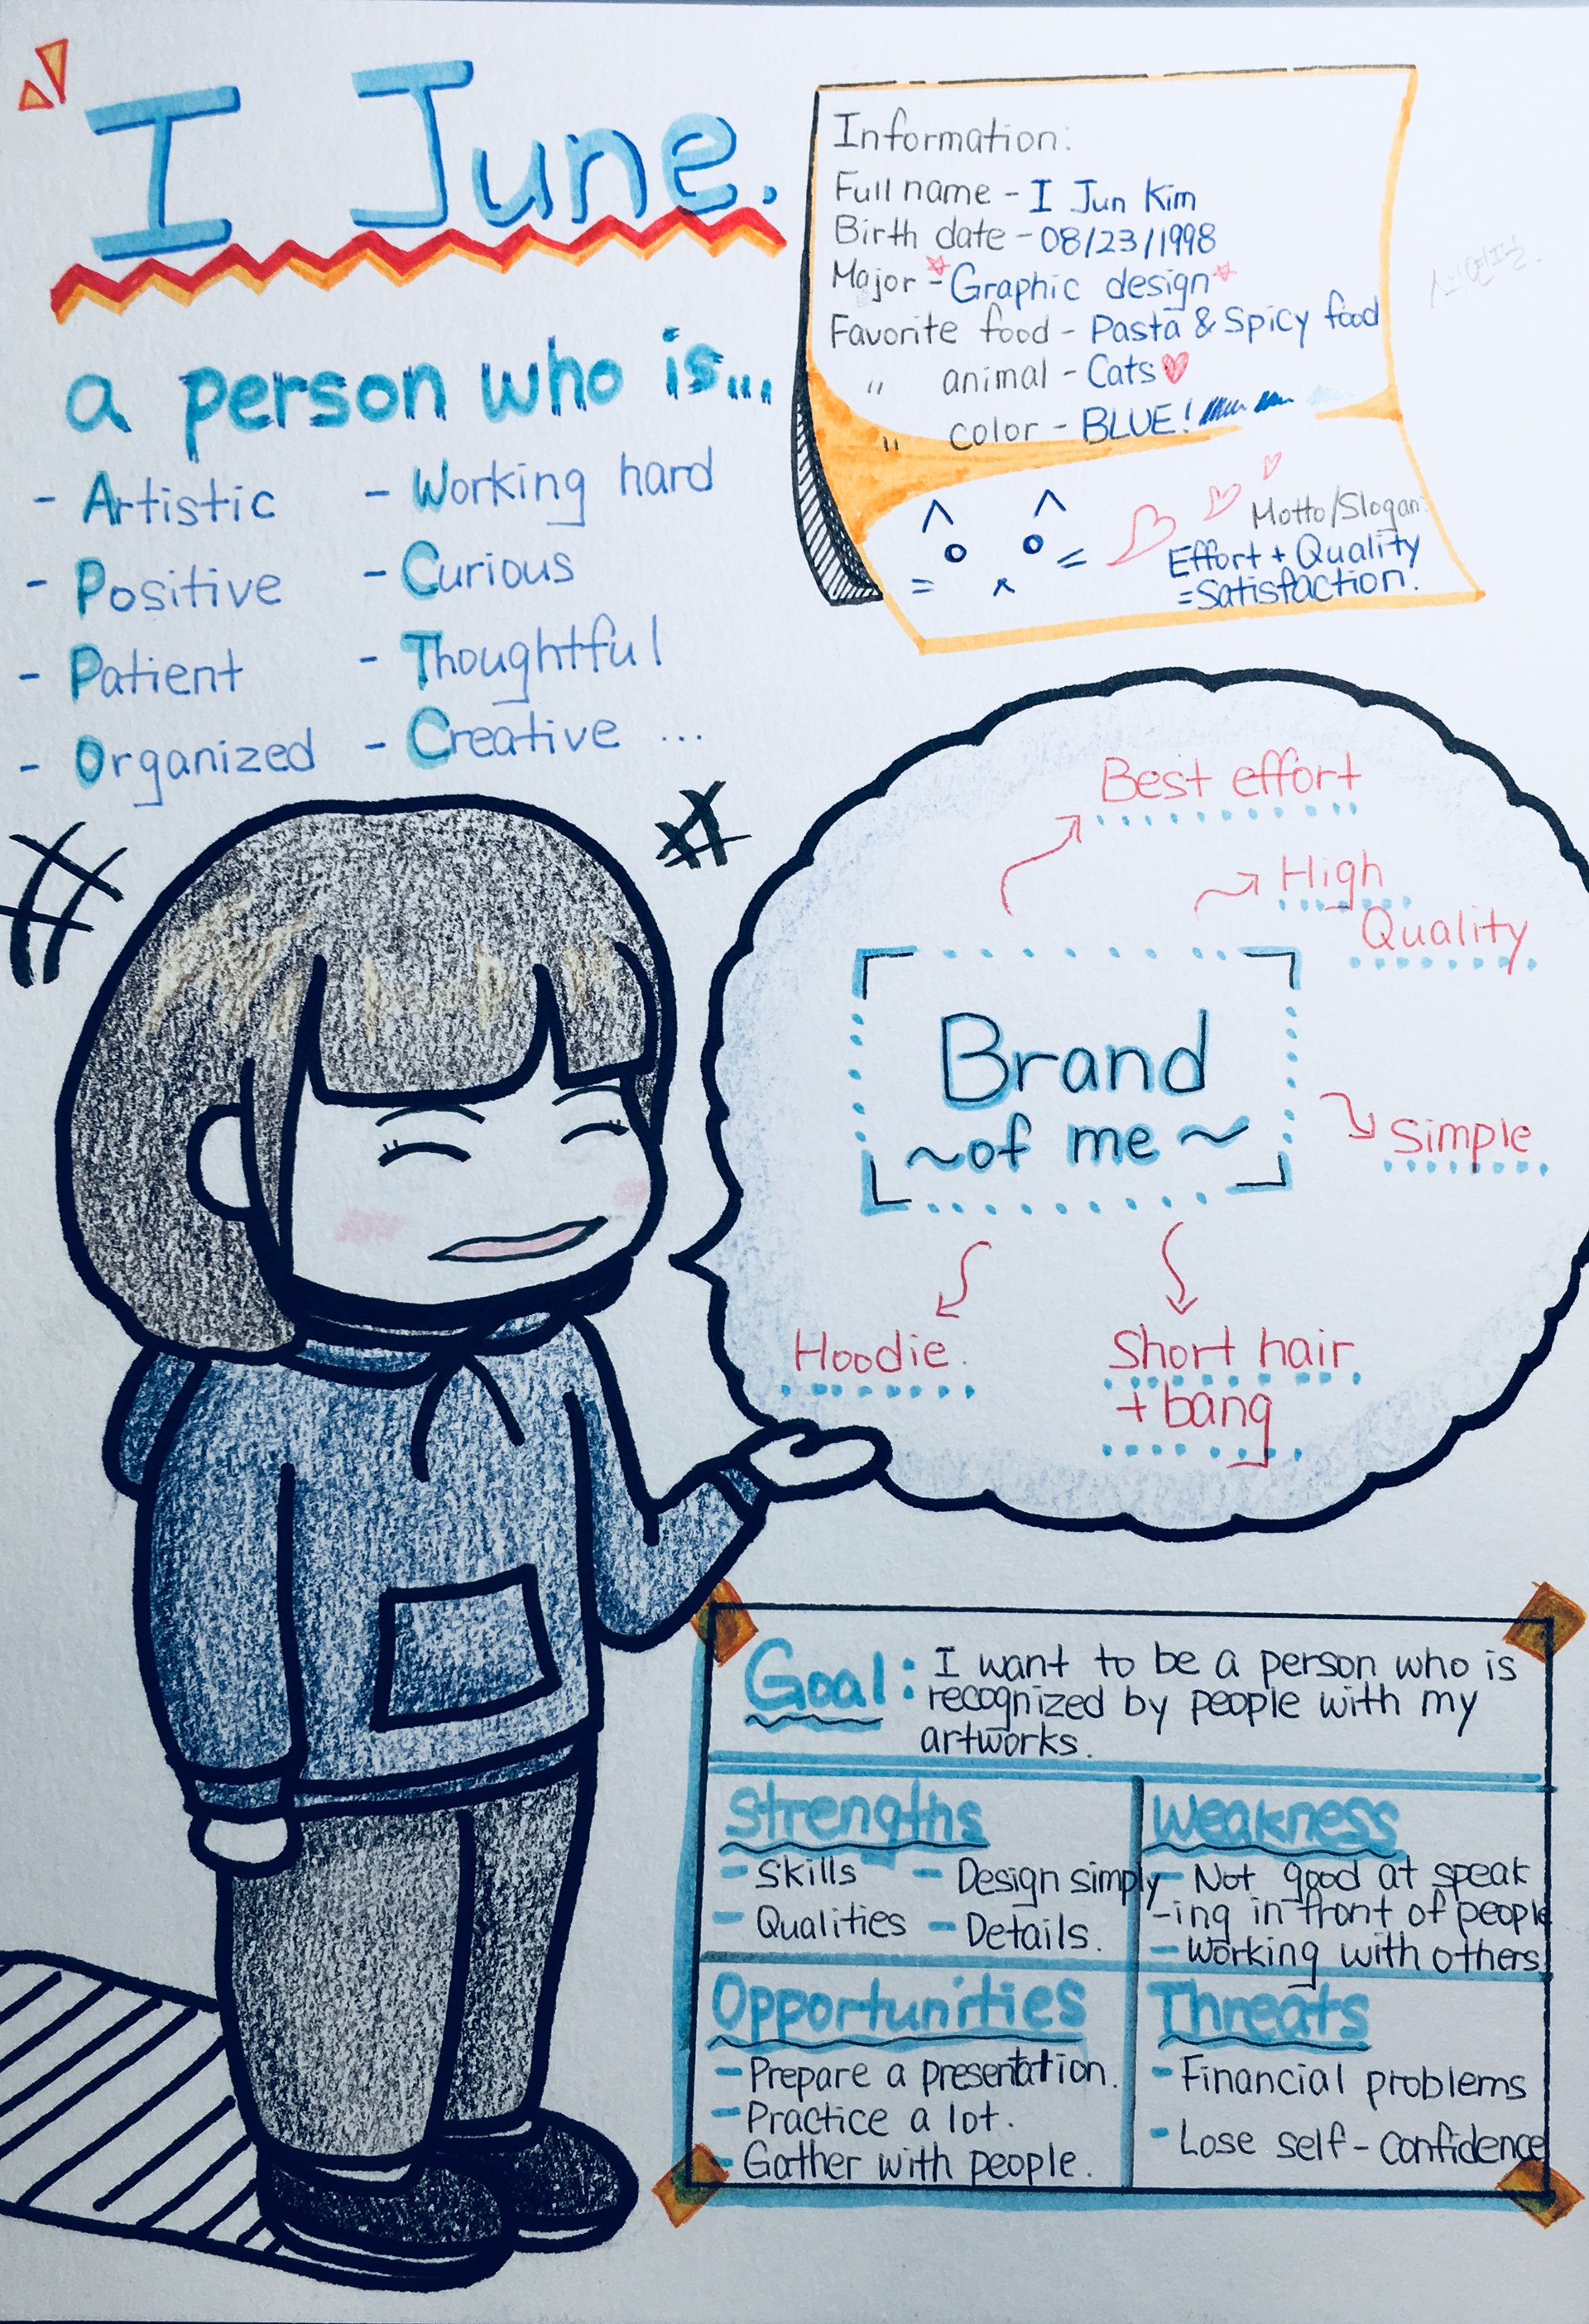 I June.
a person who is...
- Artistic
- Positive
- Patient
- Organized
- Working hard
- Curious
- Thoughtful
- Creative ...
Information:
Full name - I Jun Kim
Birth date - 08/23/1998
Major - Graphic design
Favorite food - Pasta & Spicy food
" animal - Cats
" color - BLUE!
Motto/Slogan:
Effort + Quality
=Satisfaction.
Best effort
High
Quality
Brand
~of me~
Simple
Hoodie.
Short hair
+ bang
Goal: I want to be a person who is
recognized by people with my
artworks.
Strengths
- Skills - Design simply
- Qualities - Details.
Weakness
- Not good at speak
-ing in front of people
- Working with others.
Opportunities
- Prepare a presentation.
- Practice a lot.
- Gather with people.
Threats
- Financial problems
- Lose self-confidence